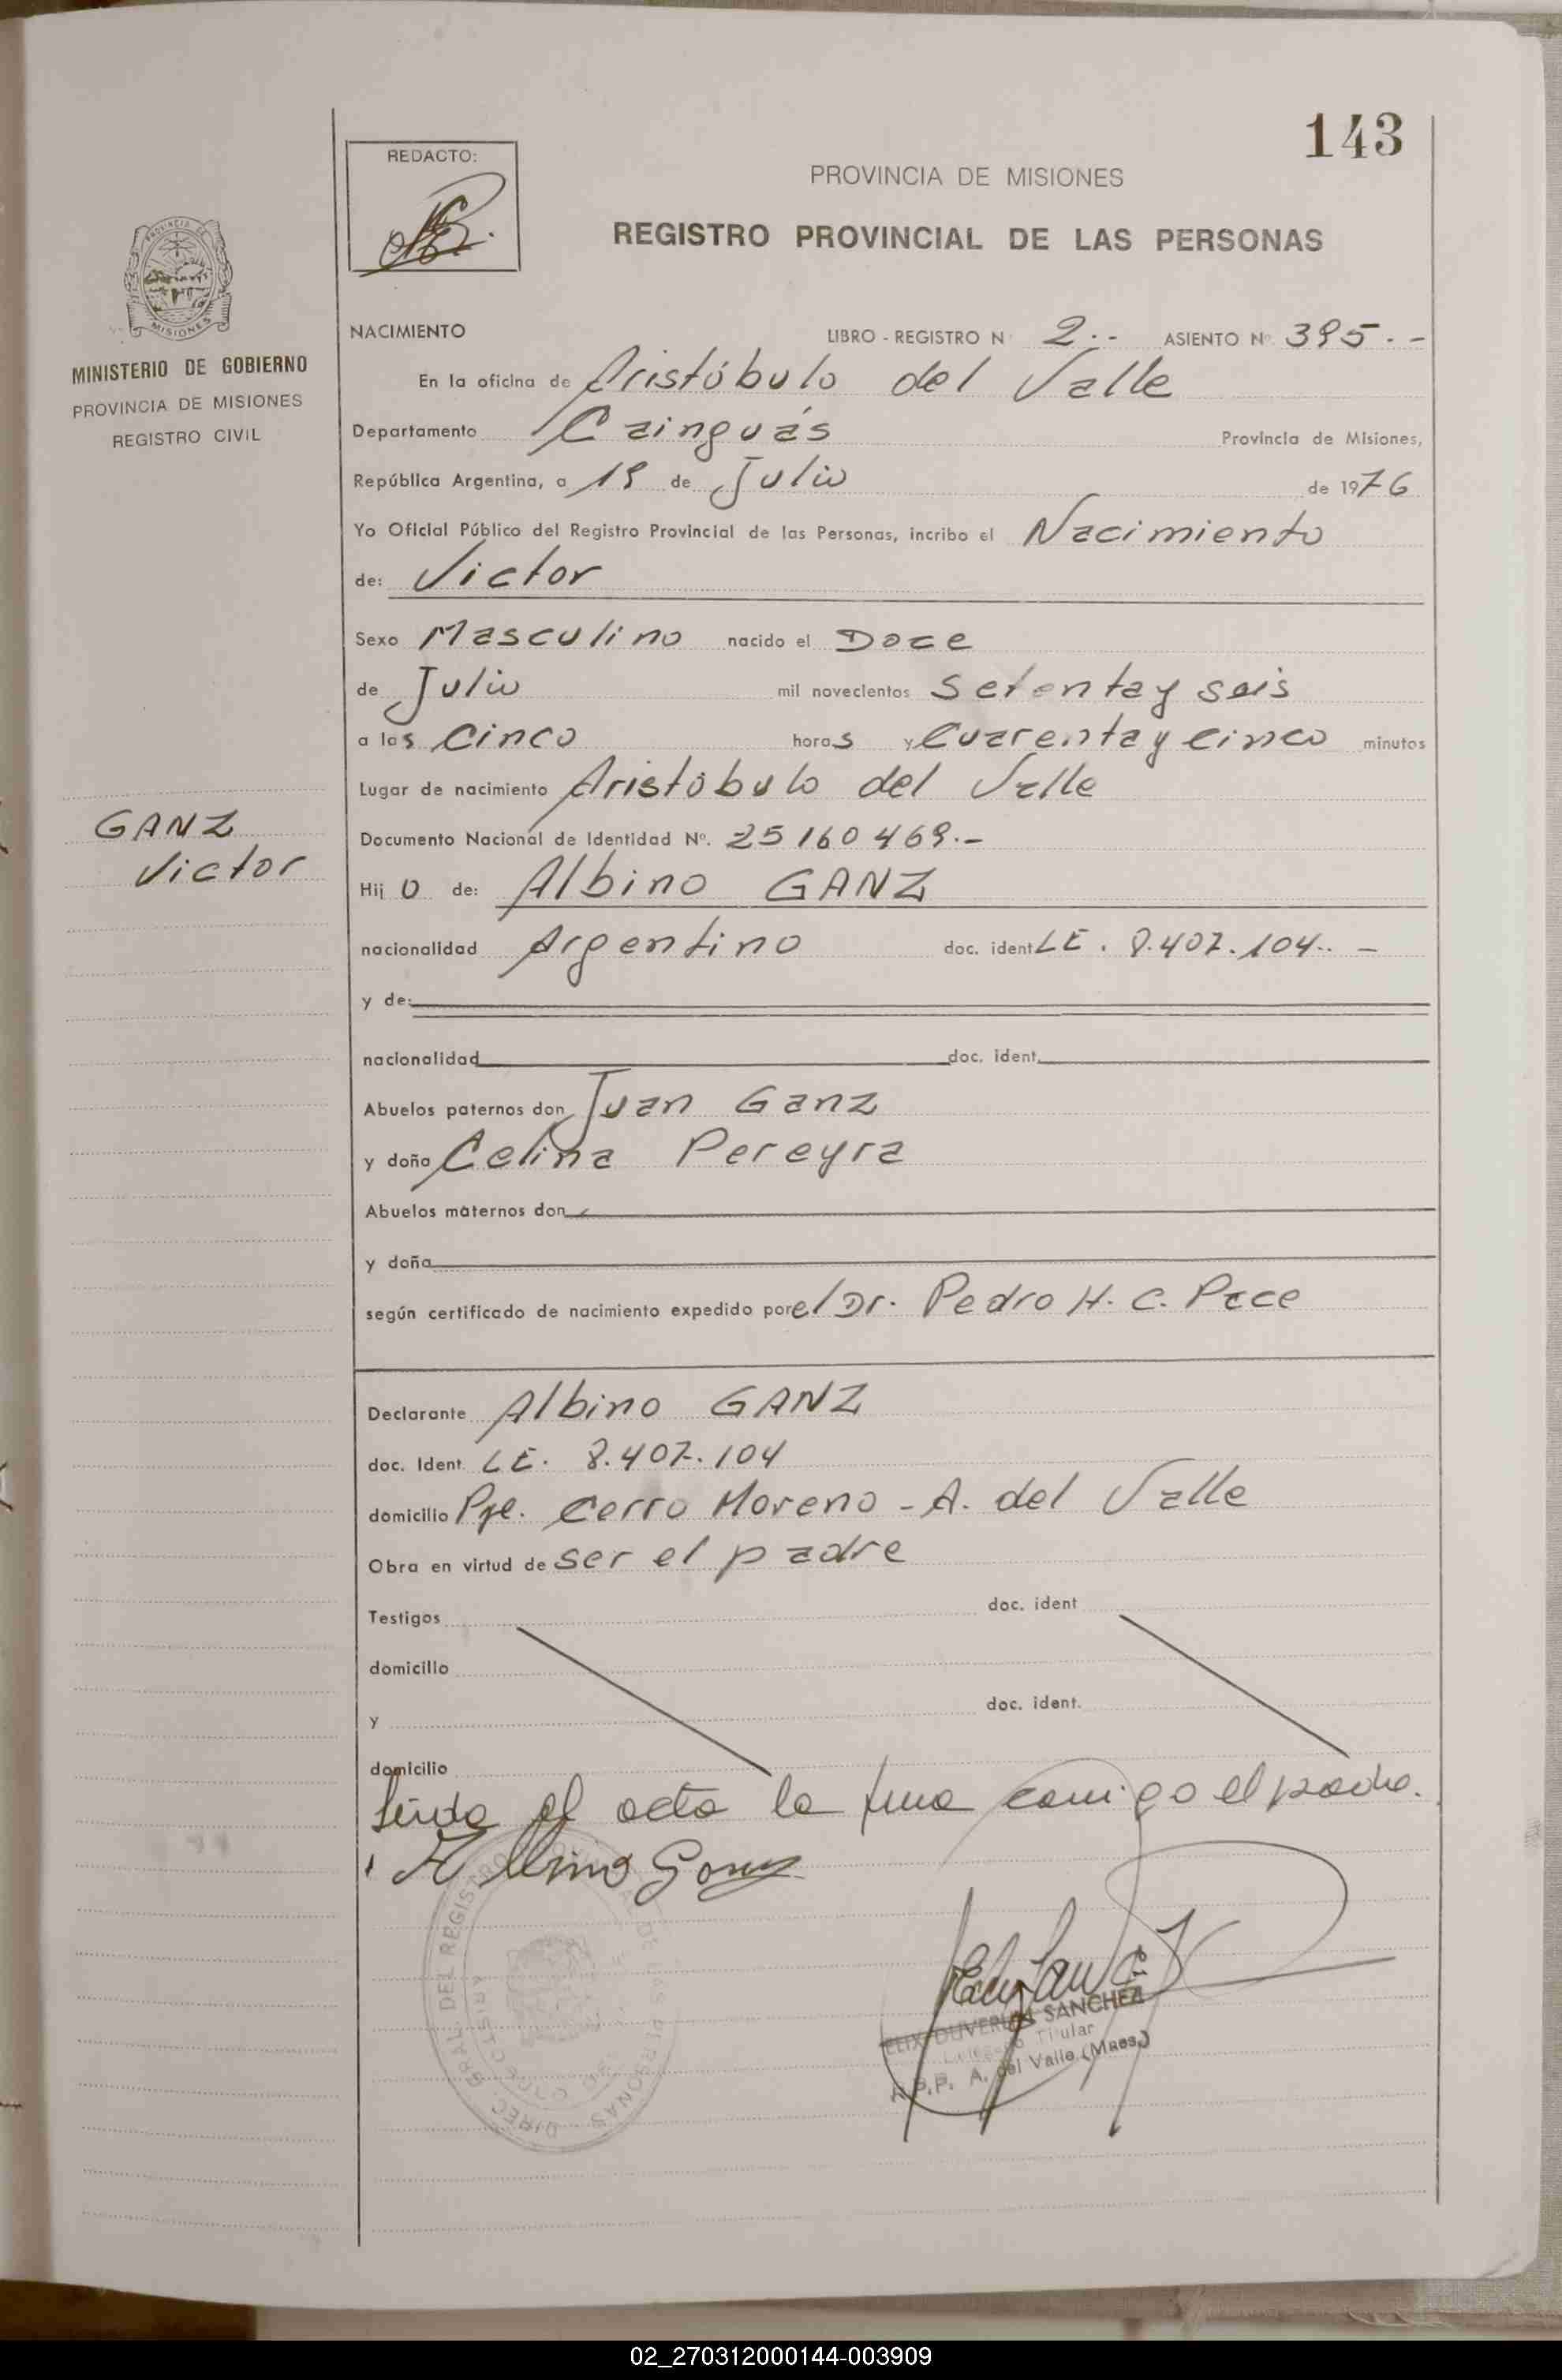 143
REDACTO:
PROVINCIA DE MISIONES
REGISTRO PROVINCIAL DE LAS PERSONAS
MISIONES
MINISTERIO DE GOBIERNO
PROVINCIA DE MISIONES
REGISTRO CIVIL
NACIMIENTO LIBRO - REGISTRO N° 2.- ASIENTO N° 395.--
En la oficina de Aristóbulo del Valle
Departamento Cainguás Provincia de Misiones,
República Argentina, a 19 de Julio de 1976
Yo Oficial Público del Registro Provincial de las Personas, incribo el Nacimiento
de: Victor
Sexo Masculino nacido el Doce
de Julio mil novecientos setenta y seis
a las Cinco horas y Cuarenta y cinco minutos
Lugar de nacimiento Aristóbulo del Valle
GANZ
Victor
Documento Nacional de Identidad N°. 25160469.-
Hij o de: Albino GANZ
nacionalidad Argentino doc. ident LE. 8.407.104.. -
y de:
nacionalidad doc. ident.
Abuelos paternos don Juan Ganz
y doña Celina Pereyra
Abuelos maternos don
y doña
según certificado de nacimiento expedido por el Dr. Pedro H. C. Pace
Declarante Albino GANZ
doc. Ident. LE. 8.407.104
domicilio Pje. Cerro Moreno - A. del Valle
Obra en virtud de ser el padre
Testigos doc. ident
domicilio
y doc. ident.
domicilio
leída el acta la firma conmigo el padre.
Albino Ganz
DIREC. GRAL. DEL REGISTRO DE LAS PERSONAS
SANCHEZ
Titular
A. del Valle (Mnes.)
02_270312000144-003909